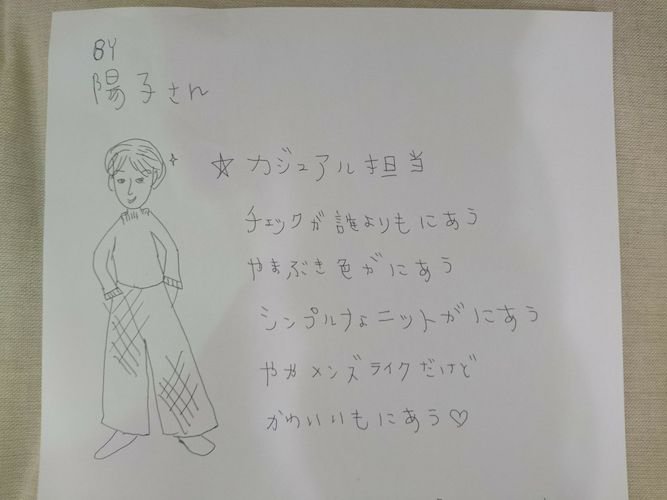 BY
陽子さん
☆ カジュアル担当
チェックが誰よりもにあう
やまぶき色がにあう
シンプルなニットがにあう
ややメンズライクだけど
かわいいもにあう♡